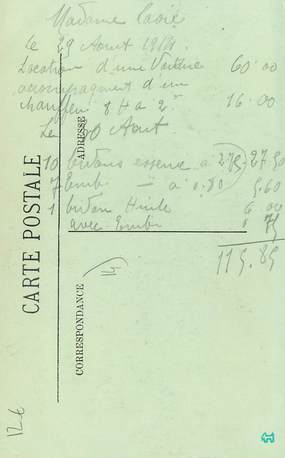 Madame
Le 29 Aout 19
Location d'une Voiture 60.00
accompagnement d'un
chauffeur 8 H a 2 16.00
Le 30 Aout
10 bidons essence a 2.75 27.50
7 Emb — a 0.80 5.60
1 bidon Huile 6 00
avec Emb 75
115.85
CARTE POSTALE
ADRESSE
CORRESPONDANCE
12€